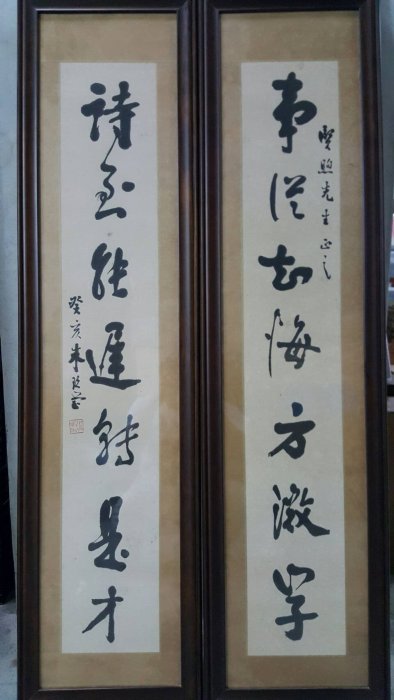 事從知悔方徵學
煦先生正之
詩到能遲轉是才
癸亥朱玖瑩